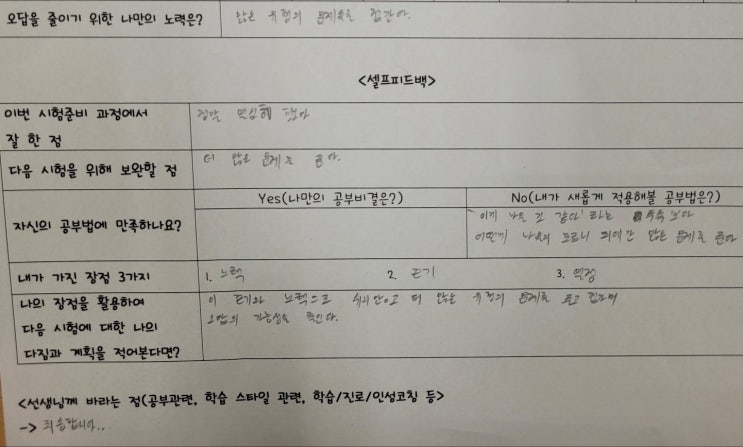 오답을 줄이기 위한 나만의 노력은?
많은 유형의 문제들을 접한다.
<셀프피드백>
이번 시험준비 과정에서
잘 한 점
정말 열심히 했다
다음 시험을 위해 보완할 점
더 많은 문제를 푼다.
Yes(나만의 공부비결은?)
No(내가 새롭게 적용해볼 공부법은?)
자신의 공부법에 만족하나요?
'이게 나올 것 같다' 라는
어떤게 나올지 모르니 최대한 많은 문제를 푼다
내가 가진 장점 3가지
1. 노력
2. 끈기
3. 열정
나의 장점을 활용하여
다음 시험에 대한 나의
다짐과 계획을 적어본다면?
이 끈기와 노력으로 쉬지않고 더 많은 유형의 문제를 풀고
오답의 가능성을 줄인다.
<선생님께 바라는 점(공부관련, 학습 스타일 관련, 학습/진로/인성코칭 등>
-> 죄송합니다..